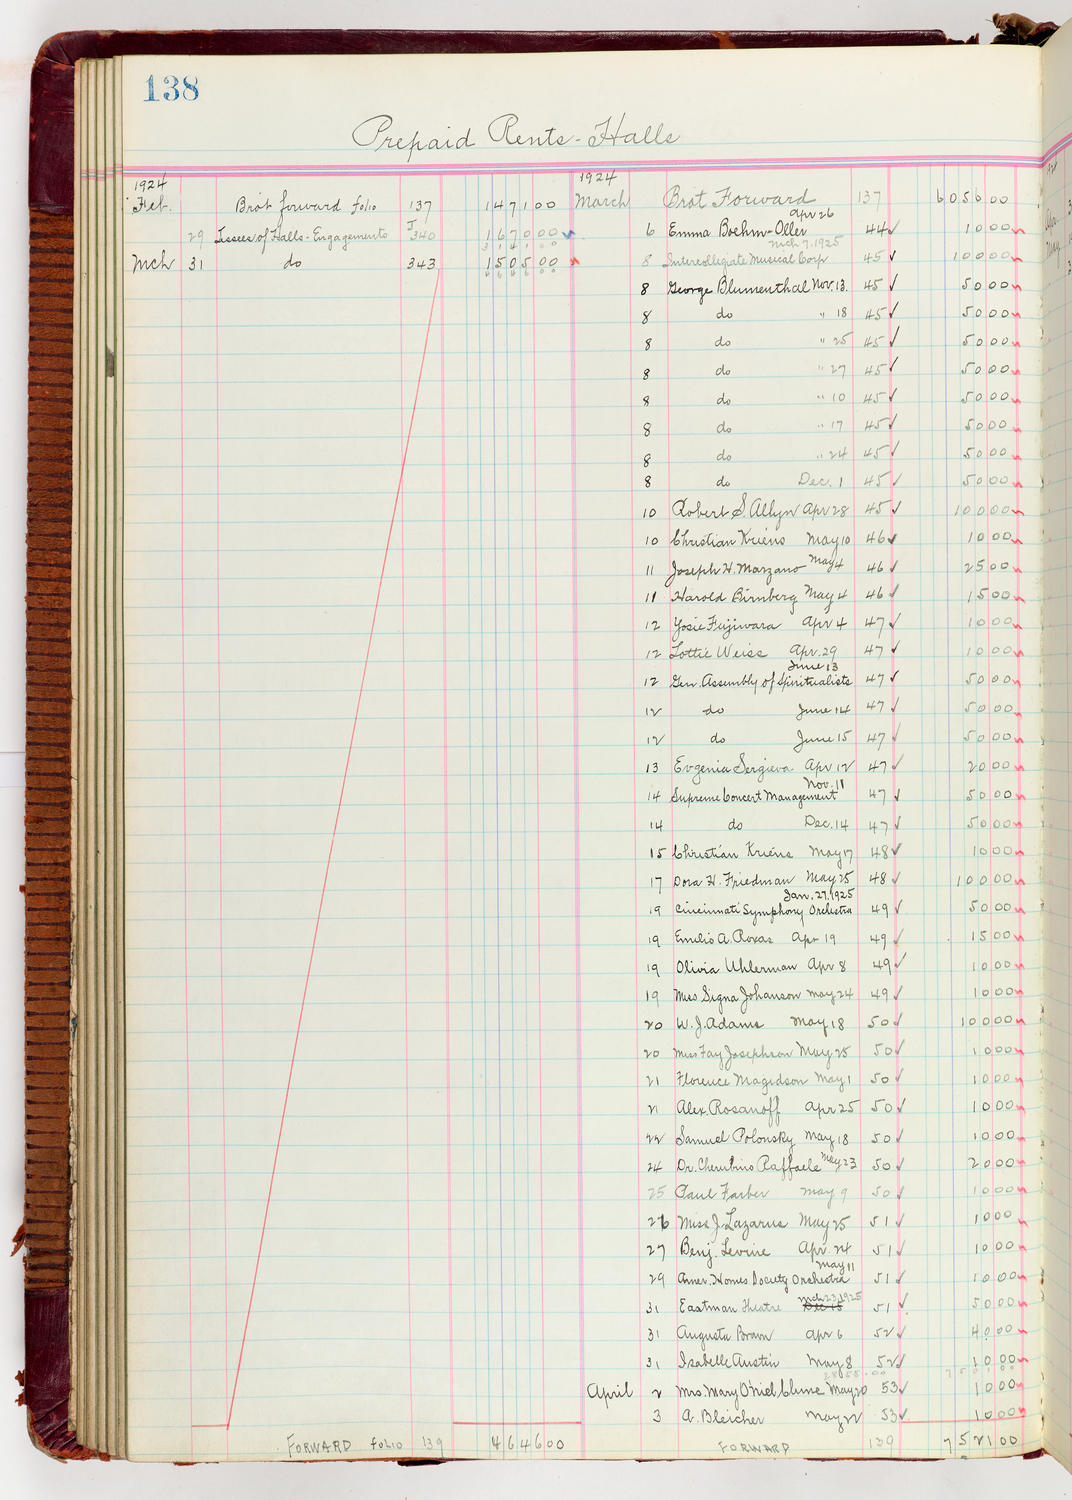 138
Prepaid Rents - Halls
1924
Feb. Brot forward folio 137 1471 00
29 Lessees of Halls - Engagements J 340 1670 00
3141 00
Mch 31 do 343 1505 00
4646 00
FORWARD folio 139 4646 00
1924
March Brot Forward 137 6056 00
6 Emma Boehm-Oller Apr 26 44 ✓ 10 00
8 Intercollegiate Musical Corp Mch 7, 1925 45 ✓ 100 00
8 George Blumenthal Nov. 13. 45 ✓ 50 00
8 do " 18 45 ✓ 50 00
8 do " 25 45 ✓ 50 00
8 do " 27 45 ✓ 50 00
8 do " 10 45 ✓ 50 00
8 do " 17 45 ✓ 50 00
8 do " 24 45 ✓ 50 00
8 do Dec. 1 45 ✓ 50 00
10 Robert S. Allyn Apr 28 45 ✓ 100 00
10 Christian Kriens May 10 46 ✓ 10 00
11 Joseph H. Marzano May 4 46 ✓ 25 00
11 Harold Birnberg May 4 46 ✓ 15 00
12 Yosie Fujiwara Apr 4 47 ✓ 10 00
12 Lottie Weiss Apr. 29 47 ✓ 10 00
12 Gen. Assembly of Spiritualists June 13 47 ✓ 50 00
12 do June 14 47 ✓ 50 00
12 do June 15 47 ✓ 50 00
13 Evgenia Sergieva Apr 12 47 ✓ 20 00
14 Supreme Concert Management Nov. 11 47 ✓ 50 00
14 do Dec. 14 47 ✓ 50 00
15 Christian Kriens May 17 48 ✓ 10 00
17 Dora H. Friedman May 25 48 ✓ 100 00
19 Cincinnati Symphony Orchestra Jan. 27, 1925 49 ✓ 50 00
19 Emilio A. Roxas Apr 19 49 ✓ 15 00
19 Olivia Uhlerman Apr 8 49 ✓ 10 00
19 Miss Signa Johanson May 24 49 ✓ 10 00
20 W. J. Adams May 18 50 ✓ 100 00
20 Miss Fay Josephson May 25 50 ✓ 10 00
21 Florence Magidson May 1 50 ✓ 10 00
21 Alex. Rosanoff Apr 25 50 ✓ 10 00
22 Samuel Polonsky May 18 50 ✓ 10 00
24 Dr. Cherubino Raffaele May 23 50 ✓ 20 00
25 Paul Farber May 9 50 ✓ 10 00
26 Miss J. Lazarus May 25 51 ✓ 10 00
27 Benj. Levine Apr. 24 51 ✓ 10 00
29 Amer. Homes Society Orchestra May 11 51 ✓ 10 00
31 Eastman Theatre Dec 15 Mch 23, 1925 51 ✓ 50 00
31 Augusta Brown Apr 6 52 ✓ 40 00
31 Isabelle Austin May 8 52 ✓ 10 00
7501 00
April 2 Mrs. Mary O'Niel Clune May 20 53 ✓ 10 00
3 A. Bleicher May 22 53 ✓ 10 00
FORWARD 139 7521 00